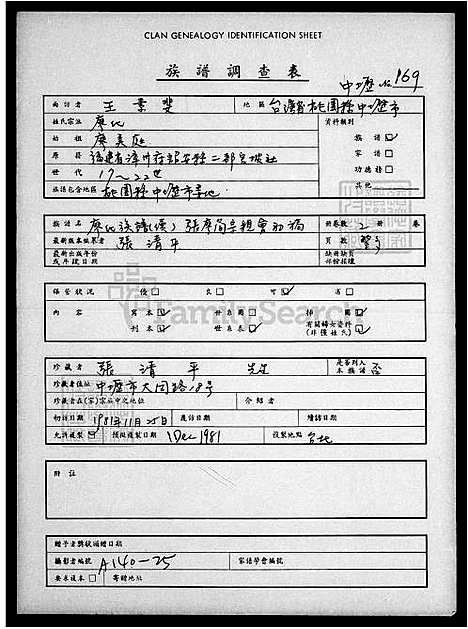 CLAN GENEALOGY IDENTIFICATION SHEET
族譜調查表
中壢 No. 169
面訪者 王業斐 地區 台灣省桃園縣中壢市
姓氏宗派 廖氏 資料類別
始祖 廖美庭 族譜
原籍 福建省漳州府詔安縣二都官坡社 家譜
世代 17~22世 功德榜
族譜包含地區 桃園縣中壢市等地 其他
族譜名 廖氏族譜(續)張廖簡宗親會初稿 冊卷數 2 冊 卷
最新版本編纂者 張清平 頁數
最新出版年份或年歲日期 缺冊缺頁部份採樓
保管狀況 優 良 可 劣
內容 寫本 世系圖 插圖
刊本 世系表 有關婦女資料(非僅姓氏)
珍藏者 張清平 先生 是否列入本族譜 否
珍藏者住址 中壢市大同路18号
珍藏者在(家)宗族中之地位 介紹者
初訪日期 1981年11月25日 复訪日期 續訪日期
允許複製 預拟複製日期 1 Dec 1981 複製地點 台北
附註
贈予者獎狀頒贈日期
攝影者編號 A140-25 家譜學會編號
要求複本 寄贈地址
FamilySearch